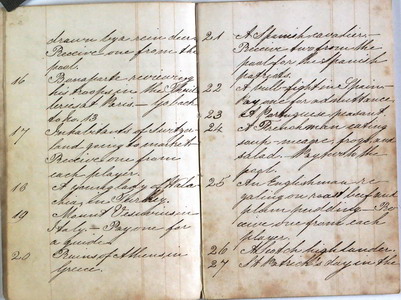 drawn by a rein deer
Receive one from the
pool.
16 Bonaparte reviewing
his troops in the
Paris — Go back
to No. 13
17 Inhabitants of Switzer
land going to market
Receive one from
each player.
18 A young lady of Wala
chia, in Turkey.
19 Mount Vesuvius in
Italy — Pay one for
a guide
20 Ruins of Athens in
Greece.
21 A Spanish cavalier —
Receive two from the
pool for the Spanish
patriots.
22 A bull fight in Spain —
Pay one for admittance
23 A Portuguese peasant
24 A Frenchman eating
soup-meagre, frogs and
salad — Pay two to the
pool.
25 An Englishman re
galing on roast beef and
plum pudding. Re
ceive one from each
player.
26 A Scotch highlander.
27 St. Patrick's day in the